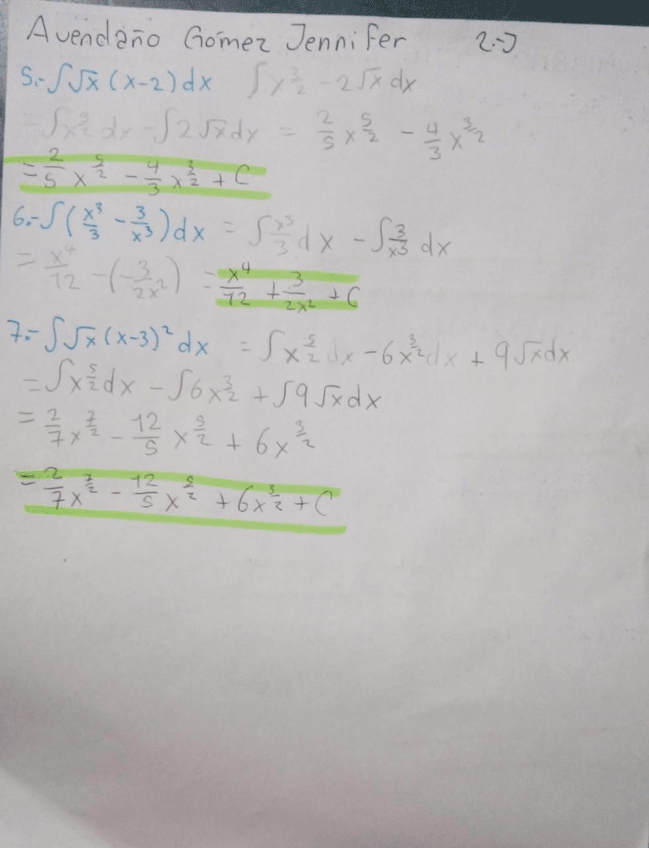 Avendaño Gómez Jennifer 2.-J
5.- ∫√x (x-2) dx ∫x^(3/2) - 2√x dx
= ∫x^(3/2) dx - ∫2√x dx = 2/5 x^(5/2) - 4/3 x^(3/2)
= 2/5 x^(5/2) - 4/3 x^(3/2) + C
6.- ∫(x³/3 - 3/x³) dx = ∫x³/3 dx - ∫3/x³ dx
= x⁴/12 - (-3/2x²) = x⁴/12 + 3/2x² + C
7.- ∫√x (x-3)² dx = ∫x^(5/2) dx - 6x^(3/2) dx + 9√x dx
= ∫x^(5/2) dx - ∫6x^(3/2) + ∫9√x dx
= 2/7 x^(7/2) - 12/5 x^(5/2) + 6x^(3/2)
= 2/7 x^(7/2) - 12/5 x^(5/2) + 6x^(3/2) + C